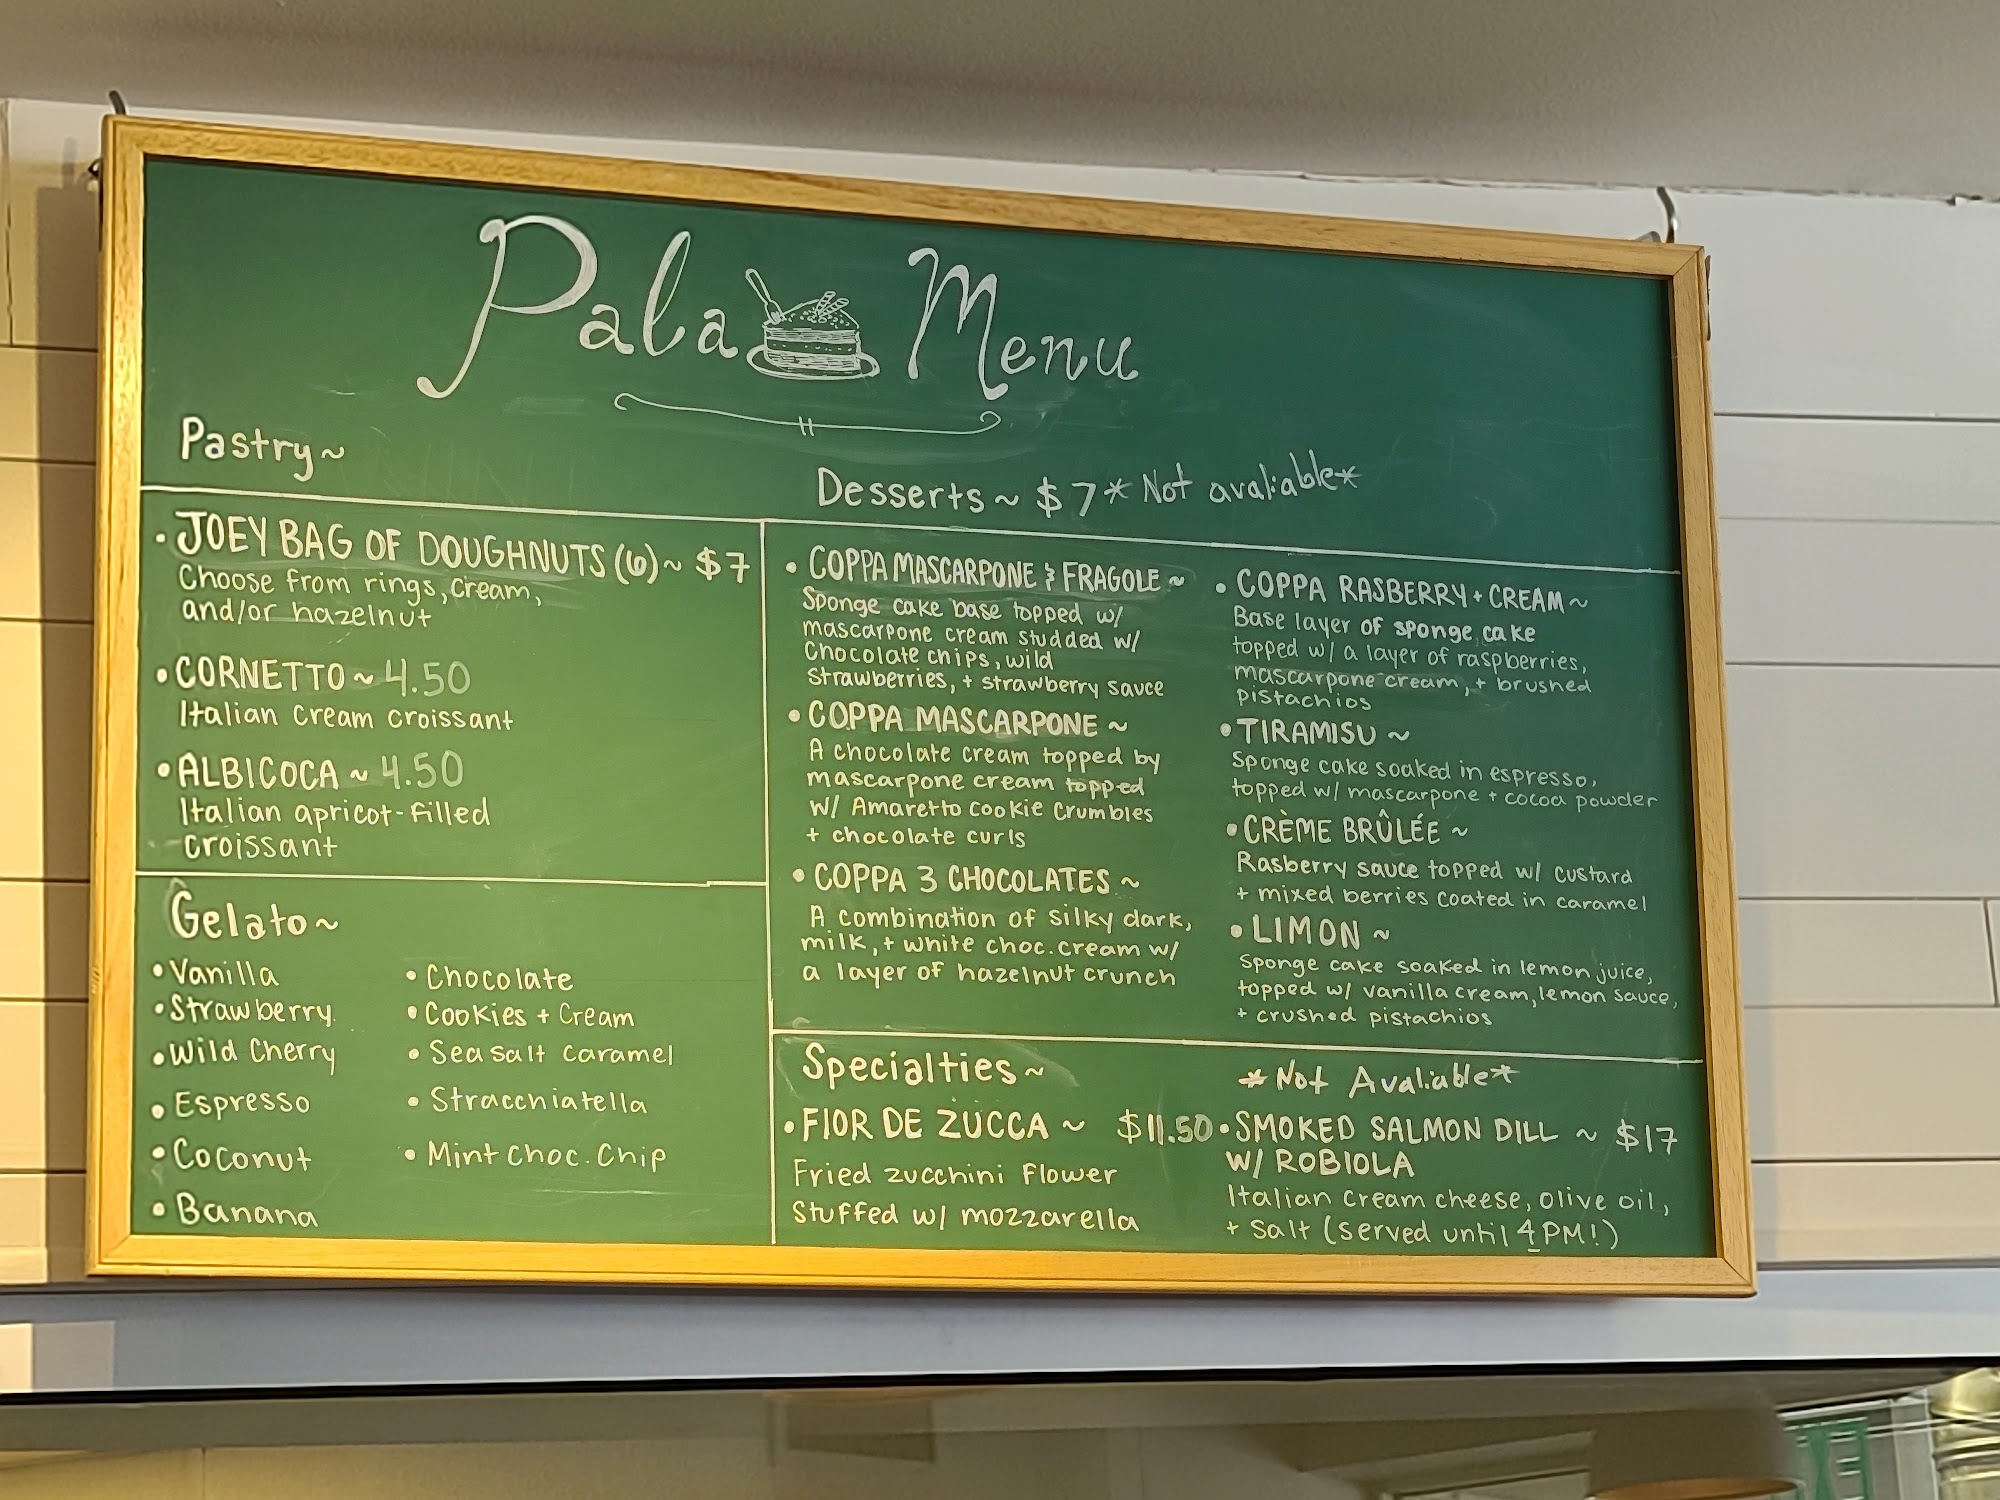 Pala Menu
Pastry~
• JOEY BAG OF DOUGHNUTS (6)~ $7
Choose from rings, cream,
and/or hazelnut
• CORNETTO ~ 4.50
Italian cream croissant
• ALBICOCA ~ 4.50
Italian apricot-filled
croissant
Gelato~
• Vanilla
• Strawberry
• Wild Cherry
• Espresso
• Coconut
• Banana
• Chocolate
• Cookies + Cream
• Sea salt caramel
• Stracchiatella
• Mint choc. Chip
Desserts ~ $7 *Not avaliable*
• COPPA MASCARPONE & FRAGOLE ~
Sponge cake base topped w/
mascarpone cream studded w/
chocolate chips, wild
strawberries, + strawberry sauce
• COPPA MASCARPONE ~
A chocolate cream topped by
mascarpone cream topped
w/ Amaretto cookie crumbles
+ chocolate curls
• COPPA 3 CHOCOLATES ~
A combination of silky dark,
milk, + white choc. cream w/
a layer of hazelnut crunch
• COPPA RASBERRY + CREAM ~
Base layer of sponge cake
topped w/ a layer of raspberries,
mascarpone cream, + brushed
pistachios
• TIRAMISU ~
Sponge cake soaked in espresso,
topped w/ mascarpone + cocoa powder
• CRÈME BRÛLÉE ~
Rasberry sauce topped w/ custard
+ mixed berries coated in caramel
• LIMON ~
Sponge cake soaked in lemon juice,
topped w/ vanilla cream, lemon sauce,
+ crushed pistachios
Specialties ~
• FIOR DE ZUCCA ~ $11.50
Fried zucchini flower
stuffed w/ mozzarella
*Not Avaliable*
• SMOKED SALMON DILL ~ $17
W/ ROBIOLA
Italian cream cheese, olive oil,
+ salt (served until 4PM!)